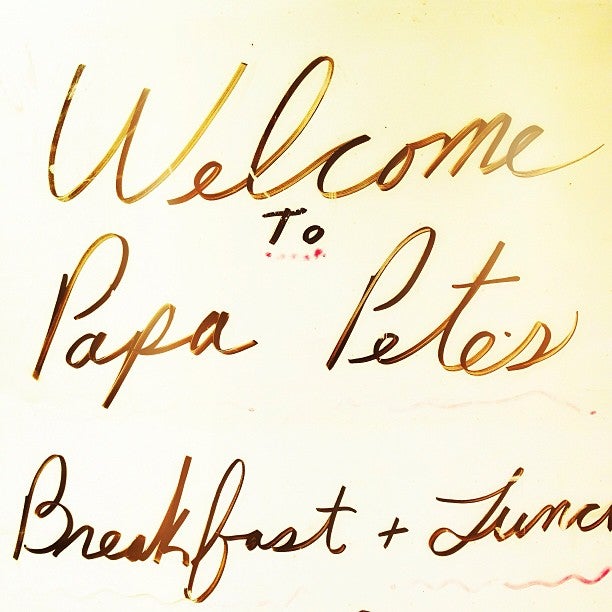 Welcome
To
Papa Pete's
Breakfast + Lunc